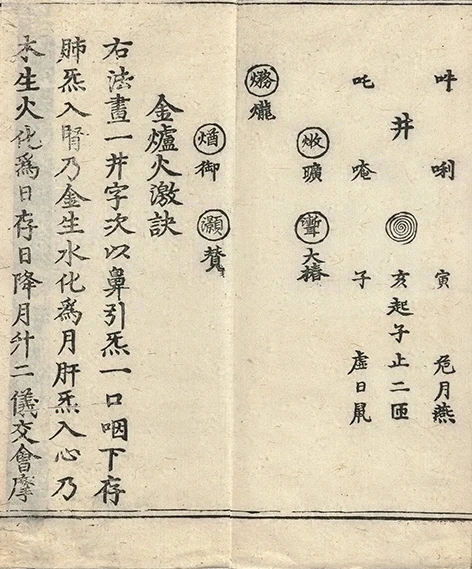 吽 唎 寅 危月燕
井 亥起子止二匝
吒 唵 子 虛日鼠
曠 大椿
爖
御 灝 贊
金爐火激訣
右法畫一井字次以鼻引炁一口咽下存
肺炁入腎乃金生水化爲月肝炁入心乃
木生火化爲日存日降月升二儀交會摩